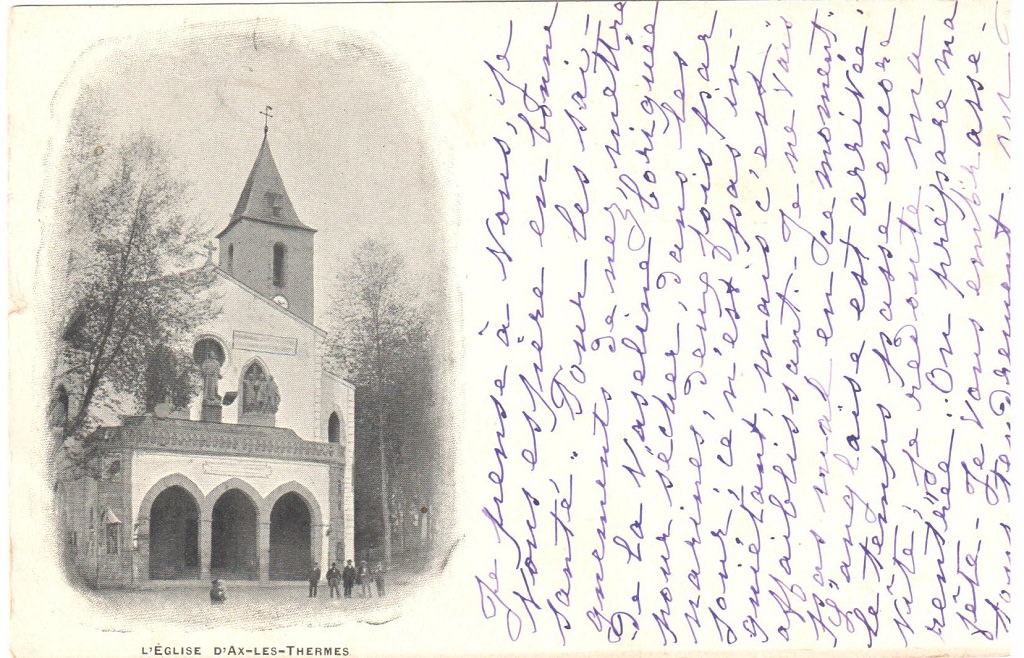 Je pense à Vous, je
Vous espère en bonne
santé. Pour les sai-
gnements de nez, mettre
de la Vaseline boriquée
pour sécher, dans les
narines, deux fois par
jour; ce n'est pas in-
quiétant, mais c'est
affaiblissant. Je ne vais
pas mal en ce moment.
L'anglaise est arrivée,
le temps passe encore
vite; je redoute ma
rentrée!! On prépare ma
fête. Je vous embrasse
tous tendrement.
L'ÉGLISE D'AX-LES-THERMES